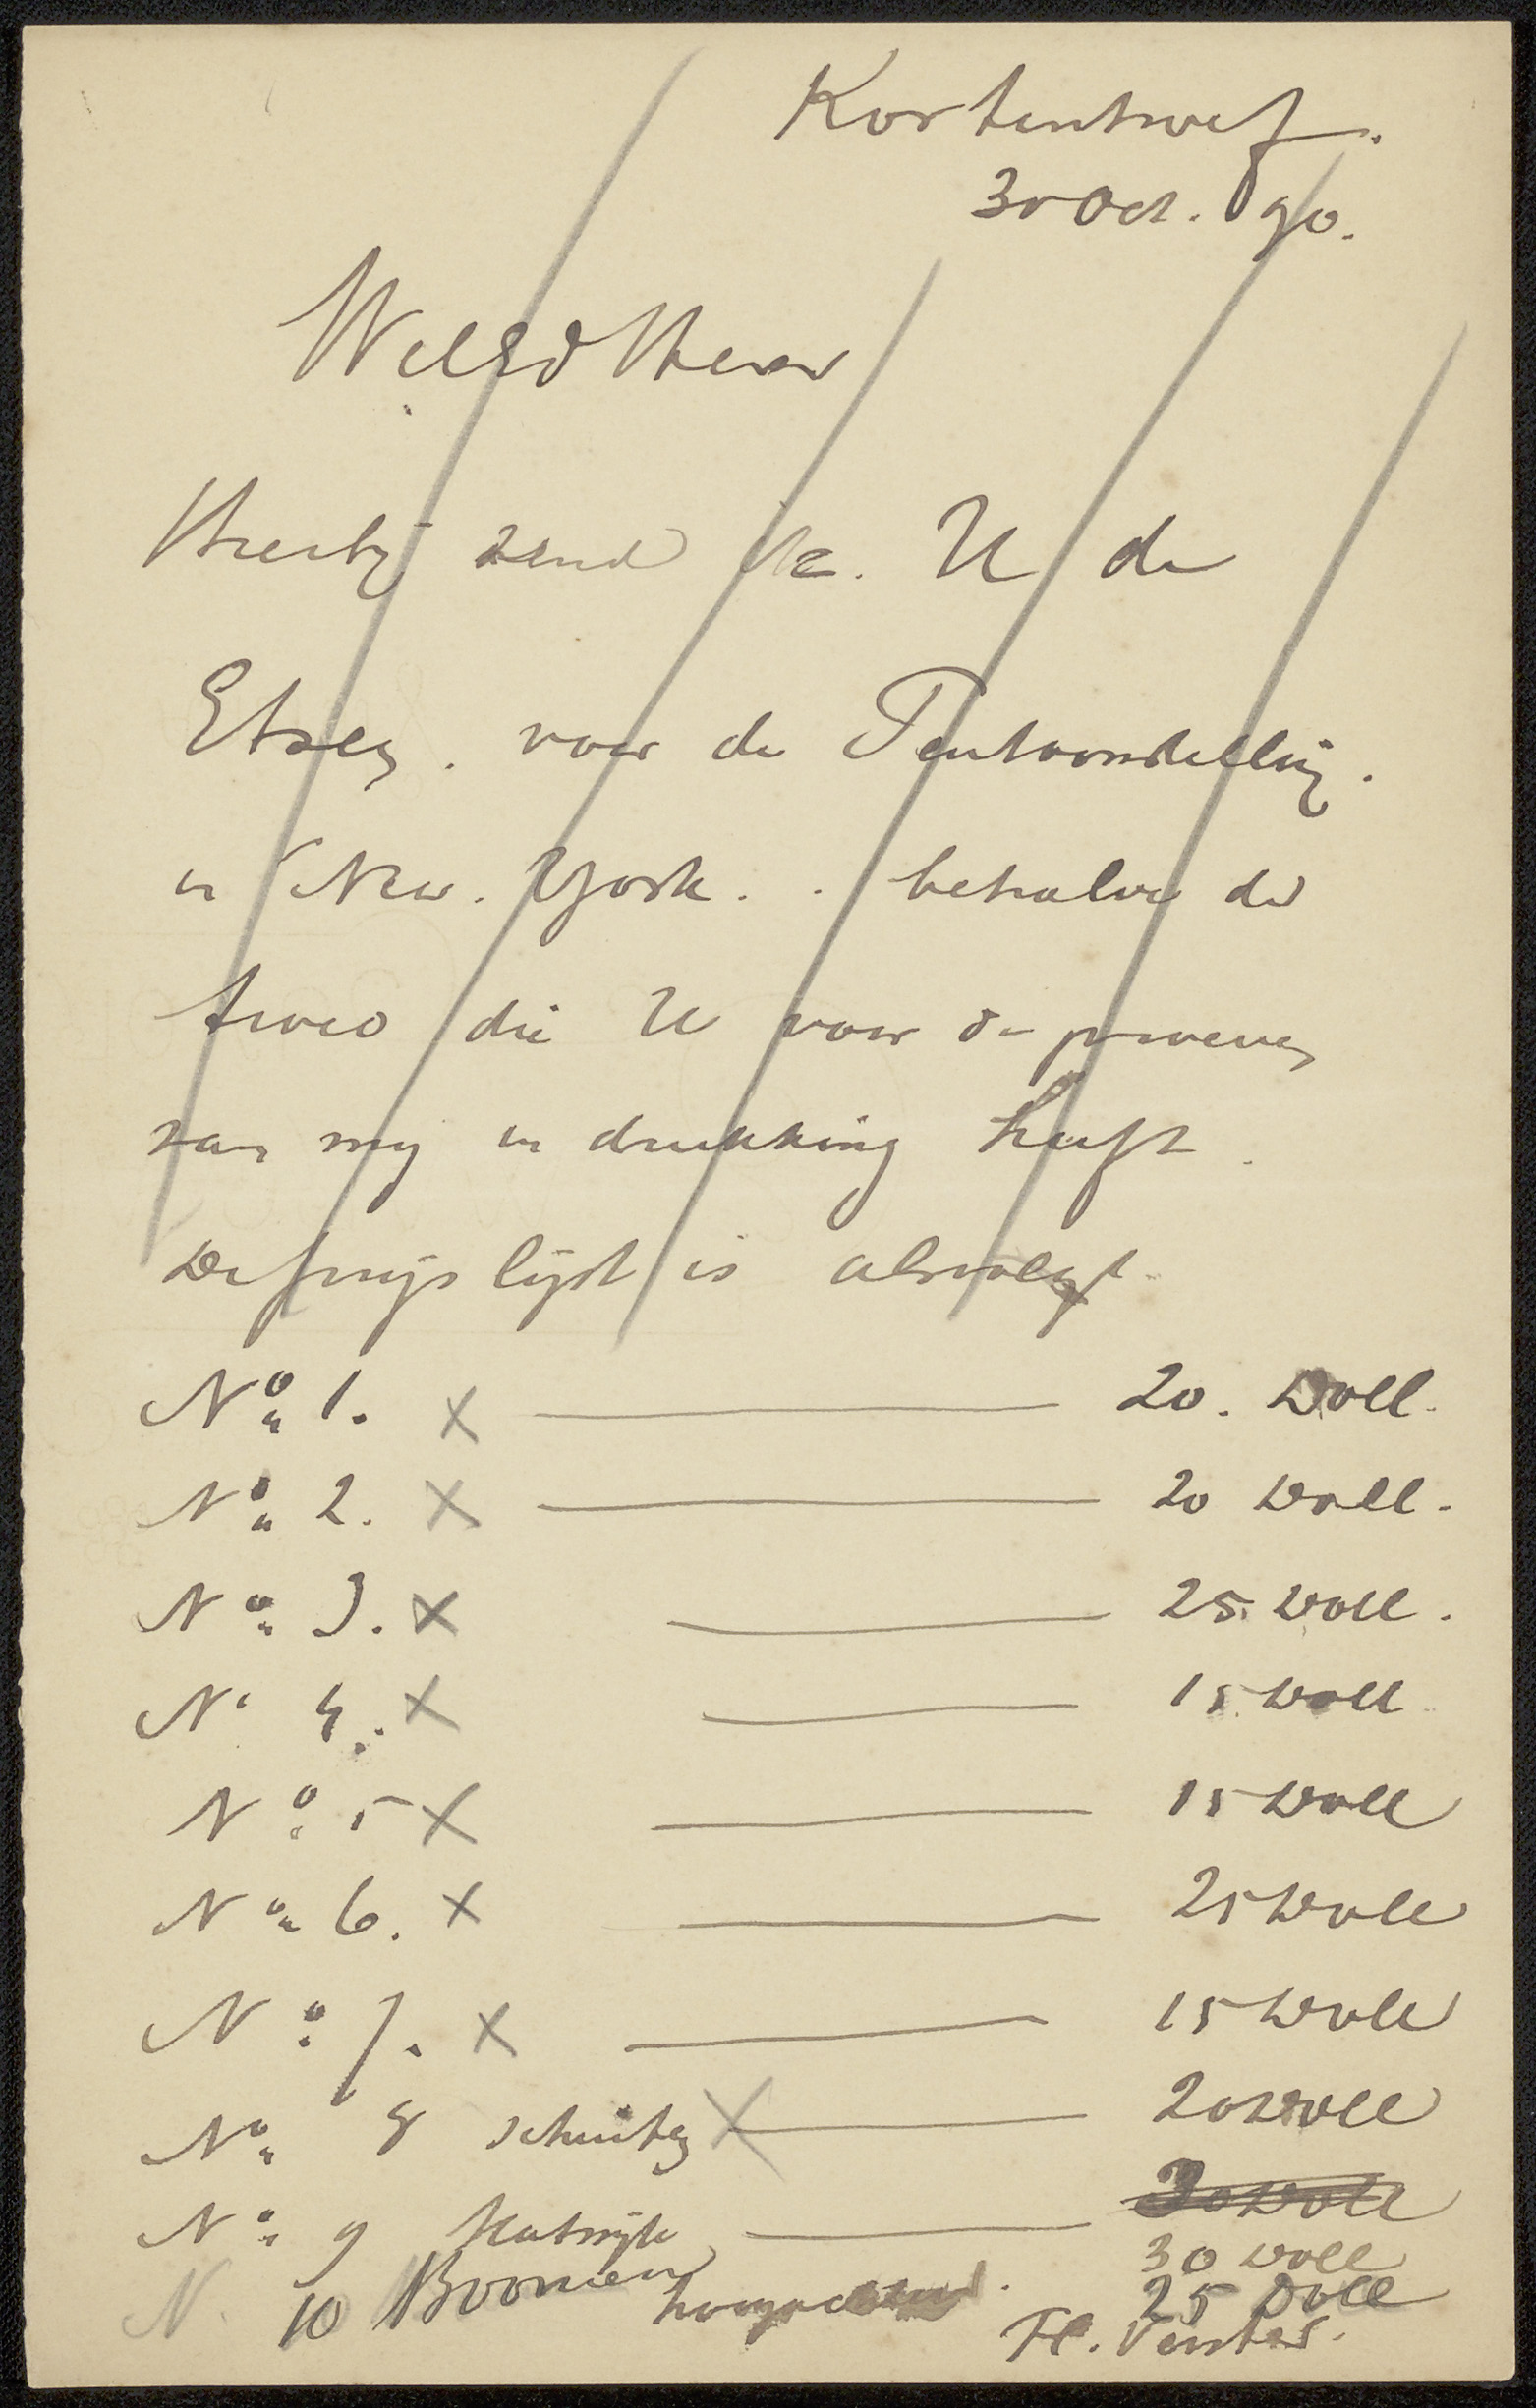 Kortenhoef.
30 Oct. 90.
WelEd Heer
Hierbij zend ik. U de
Etsen. voor de Tentoonstelling.
in New. York. . behalve de
twee die U voor de proeven
van mij in drukking heeft.
De prijs lijst is alsvolgt
No 1. X — 20. Doll.
No 2. X — 20 Doll.
No 3. X — 25. Doll.
No 4. X — 15 Doll
No 5 X — 15 Doll
No 6. X — 25 Doll
No 7. X — 15 Doll
No 8 schuiten X — 20 Doll
No 9 Katwijk — 30 Doll
30 Doll
N. 10 Boomen 25 Doll
hoogachtend.